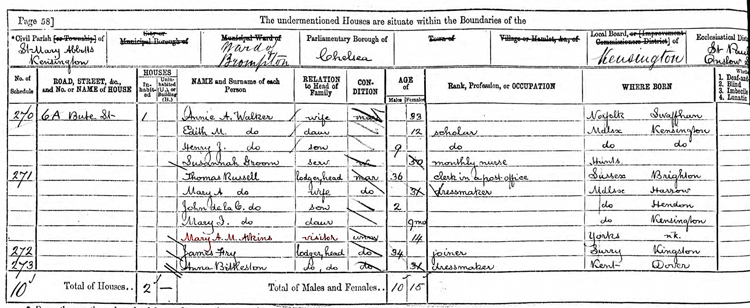 Page 58]
The undermentioned Houses are situate within the Boundaries of the
*Civil Parish [or Township] of
City or Municipal Borough of
Municipal Ward of
Parliamentary Borough of
Town of
Village or Hamlet, &c., of
Local Board, or [Improvement Commissioners District] of
Ecclesiastical Dist
St Mary Abbotts Kensington
Ward of Brompton
Chelsea
Kensington
St
Onslow
No. of Schedule
ROAD, STREET, &c., and No. or NAME of HOUSE
HOUSES
Inhabited
Uninhabited (U.), or Building (B.)
NAME and Surname of each Person
RELATION to Head of Family
CONDITION
AGE of
Males
Females
Rank, Profession, or OCCUPATION
WHERE BORN
(1) Deaf-and
(2) Blind
(3) Imbecile
(4) Lunatic
270 6A Bute St 1 Annie A. Walker wife mar 33 Norfolk Swaffham
Edith M. do daur 12 scholar Mdlsx Kensington
Henry J. do son 9 do do do
Susannah Groom serv monthly nurse Hunts
271 Thomas Russell lodger, head mar 36 clerk in a post office Sussex Brighton
Mary A do wife do dressmaker Mdlsx Harrow
John de la C. do son 2 do Hendon
Mary I. do daur 9mo do Kensington
Mary A. M. Atkins visitor unm 14 Yorks n.k.
272 James Fry lodger, head do 34 joiner Surry Kingston
273 Anna Bilkeston do, do do dressmaker Kent Dover
10 Total of Houses... 2 Total of Males and Females... 10 15